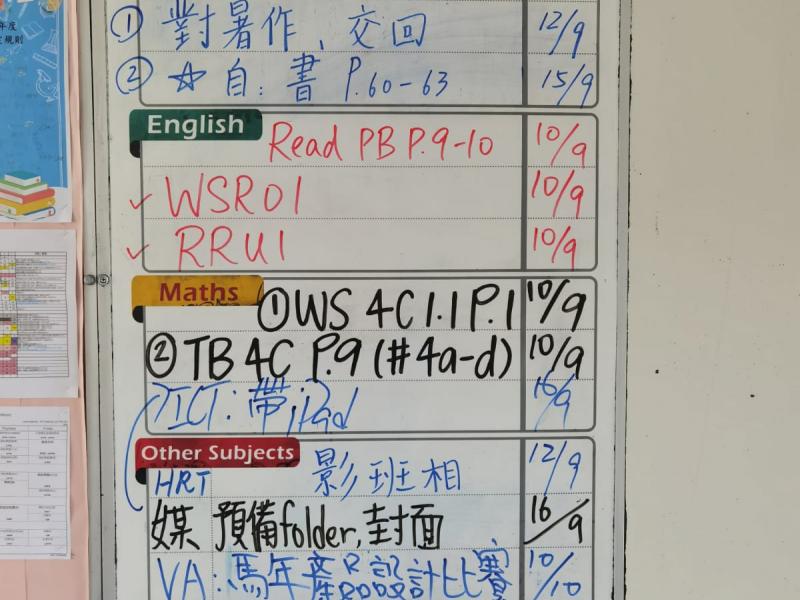 ① 對暑作, 交回 12/9
② ☆自: 書 P.60-63 15/9
English
Read PB P.9-10 10/9
✓ WSR01 10/9
✓ RRU1 10/9
Maths
① WS 4C1.1 P.1 10/9
② TB 4C P.9 (#4a-d) 10/9
ICT: 帶iPad 16/9
Other Subjects
HRT 影班相 12/9
媒 預備folder,封面 16/9
VA: 馬年產品設計比賽 10/10